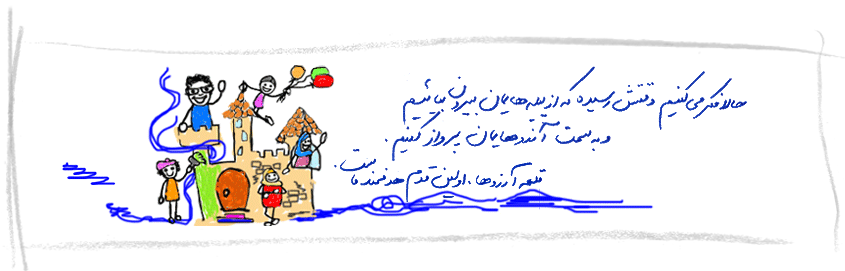 حالا فکر می کنیم وقتش رسیده که از پیله هایمان بیرون بیائیم
و به سمت آرزوهایمان پرواز کنیم.
قلعه آرزوها، اولین قدم هدفمند ماست.